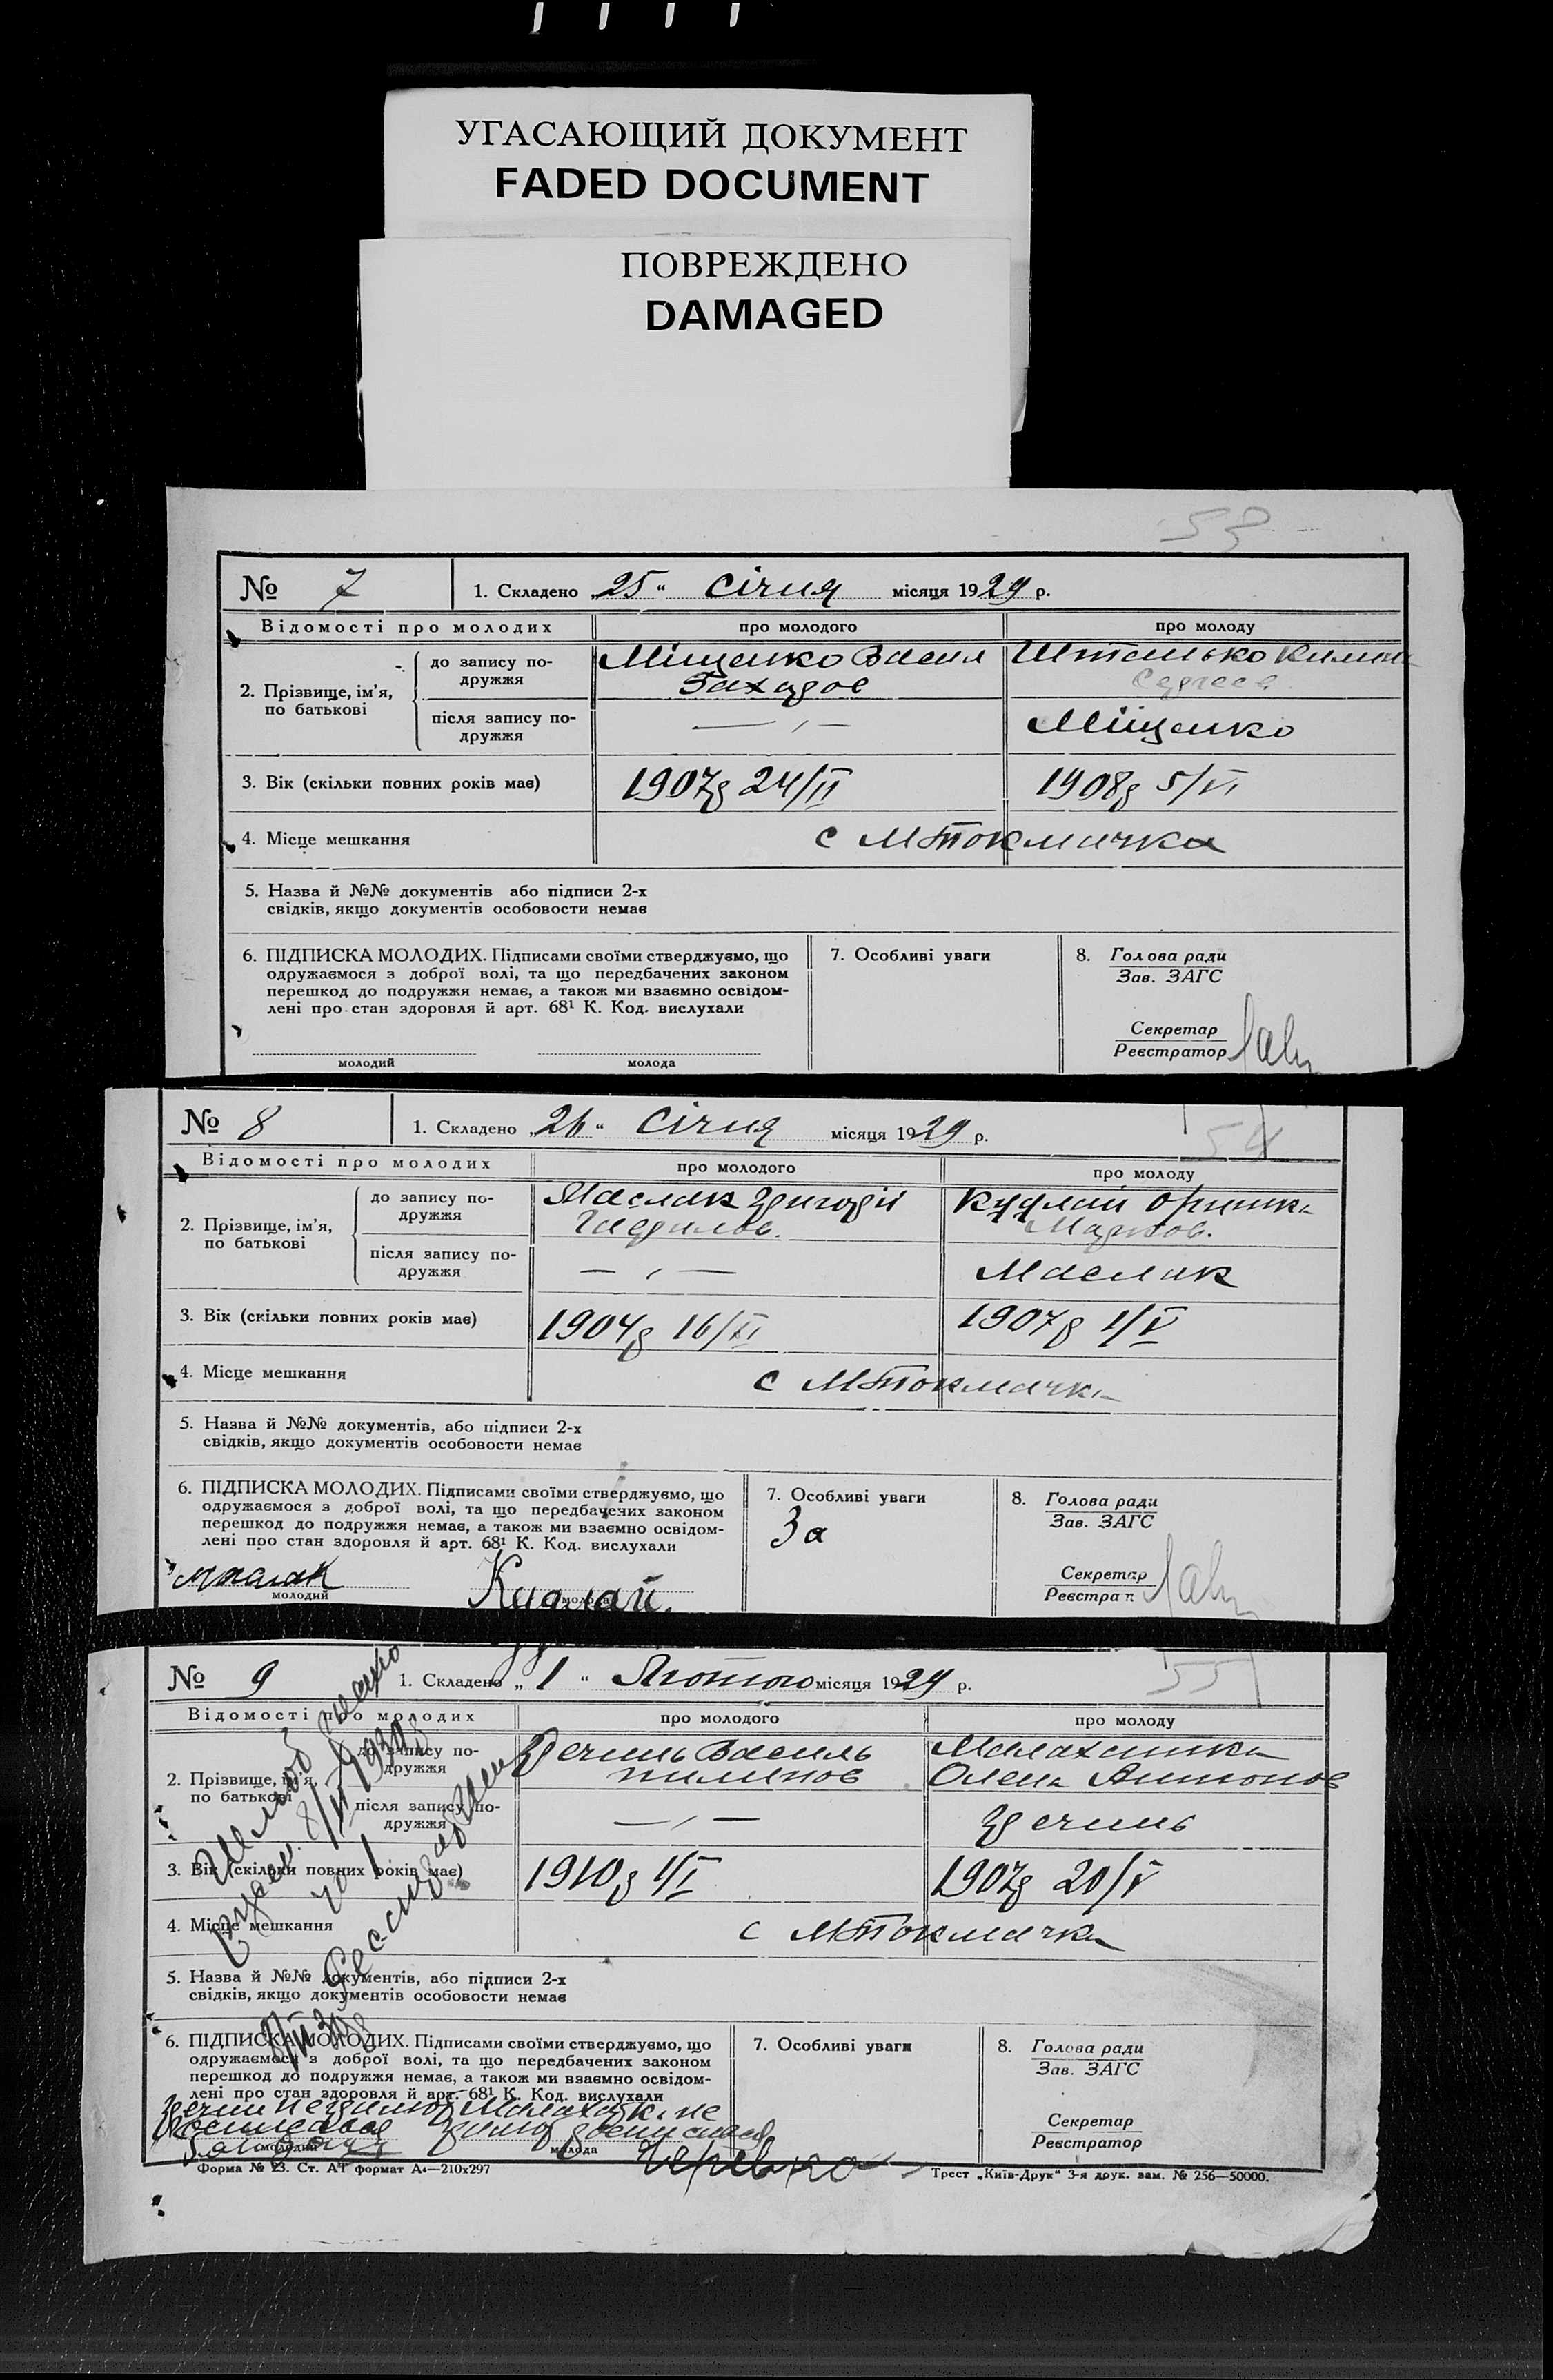 УГАСАЮЩИЙ ДОКУМЕНТ
FADED DOCUMENT
ПОВРЕЖДЕНО
DAMAGED
53
№ 7 1. Складено „25“ Січня місяця 1929 р.
Відомості про молодих про молодого про молоду
2. Прізвище, ім'я, по батькові
до запису по-
дружжя
Міщенко Васил
Захаров
після запису по-
дружжя
Міщенко
3. Вік (скільки повних років має) 1907р 24/II 1908р 5/VI
4. Місце мешкання с МТокмачка
5. Назва й №№ документів або підписи 2-х
свідків, якщо документів особовости немає
6. ПІДПИСКА МОЛОДИХ. Підписами своїми стверджуємо, що
одружаємося з доброї волі, та що передбачених законом
перешкод до подружжя немає, а також ми взаємно освідом-
лені про стан здоровля й арт. 68¹ К. Код. вислухали
молодий молода
7. Особливі уваги
8. Голова ради
Зав. ЗАГС
Секретар
Реєстратор
№ 8 1. Складено „26“ Січня місяця 1929 р.
54
Відомості про молодих про молодого про молоду
2. Прізвище, ім'я, по батькові
до запису по-
дружжя
Маслак Григорій
Гаврилов.
Кудлай Оришка
Марков.
після запису по-
дружжя
Маслак
3. Вік (скільки повних років має) 1904р 16/XI 1907р 1/V
4. Місце мешкання с МТокмачка
5. Назва й №№ документів, або підписи 2-х
свідків, якщо документів особовости немає
6. ПІДПИСКА МОЛОДИХ. Підписами своїми стверджуємо, що
одружаємося з доброї волі, та що передбачених законом
перешкод до подружжя немає, а також ми взаємно освідом-
лені про стан здоровля й арт. 68¹ К. Код. вислухали
Кудлай.
молодий молода
7. Особливі уваги
За
8. Голова ради
Зав. ЗАГС
Секретар
Реєстра
№ 9 1. Складено „1“ Лютого місяця 1929 р.
55
Відомості про молодих про молодого про молоду
2. Прізвище, ім'я, по батькові
до запису по-
дружжя
Гречинь Василь
Пилипов
Малахатка
Олена Антонов
після запису по-
дружжя
Гречинь
3. Вік (скільки повних років має) 1910р 1/I 1907р 20/V
4. Місце мешкання с МТокмачка
5. Назва й №№ документів, або підписи 2-х
свідків, якщо документів особовости немає
6. ПІДПИСКА МОЛОДИХ. Підписами своїми стверджуємо, що
одружаємося з доброї волі, та що передбачених законом
перешкод до подружжя немає, а також ми взаємно освідом-
лені про стан здоровля й арт. 68¹ К. Код. вислухали
молодий молода
7. Особливі уваги
8. Голова ради
Зав. ЗАГС
Секретар
Реєстратор
Форма № 23. Ст. АТ формат А₄—210х297
Трест „Київ-Друк“ 3-я друк. зам. № 256—50000.